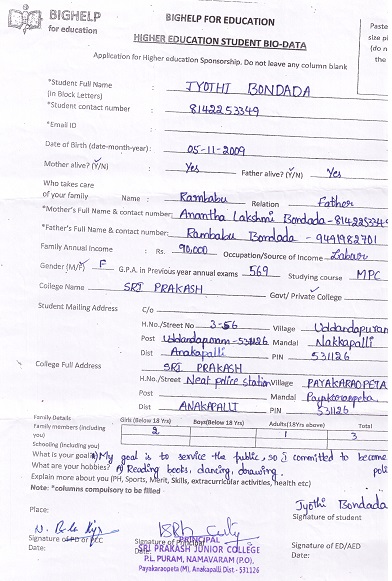 BIGHELP
for education
BIGHELP FOR EDUCATION
HIGHER EDUCATION STUDENT BIO-DATA
Paste
size pi
(do n
the
Application for Higher education Sponsorship. Do not leave any column blank
*Student Full Name : JYOTHI BONDADA
(in Block Letters)
*Student contact number : 8142253349
*Email ID :
Date of Birth (date-month-year): 05-11-2009
Mother alive? (Y/N) Yes Father alive? (Y/N) Yes
Who takes care
of your family Name : Rambabu Relation Father
*Mother's Full Name & contact number: Anantha Lakshmi Bondada - 814225334
*Father's Full Name & contact number: Rambabu Bondada - 9441982701
Family Annual Income : Rs. 90,000 Occupation/Source of Income Labour
Gender (M/F) F G.P.A. in Previous year annual exams 569 Studying course MPC
College Name SRI PRAKASH Govt/ Private College
Student Mailing Address C/o
H.No./Street No 3-56 Village Uddandapuram
Post Uddandapuram-531126 Mandal Nakkapalli
Dist Anakapalli PIN 531126
College Full Address SRI PRAKASH
H.No./Street Neat police station Village PAYAKARAOPETA
Post Mandal Payakaraopeta
Dist ANAKAPALLI PIN 531126
Family Details Girls (Below 18 Yrs) Boys(Below 18 Yrs) Adults(18Yrs above) Total
Family members (including you) 2 1 3
Schooling (including you)
What is your goal: My goal is to service the public, so I committed to become poli
What are your hobbies? A) Reading books, dancing, drawing.
Explain more about you (PH, Sports, Merit, Skills, extracurricular activities, health etc)
Note: *columns compulsory to be filled
Place: Jyothi Bondada
Signature of student
Signature of
Date:
Signature of Principal
Date:
Signature of ED/AED
Date:
PRINCIPAL
SRI PRAKASH JUNIOR COLLEGE
P.L PURAM, NAMAVARAM (P.O),
Payakaraopeta (M), Anakapalli Dist - 531126